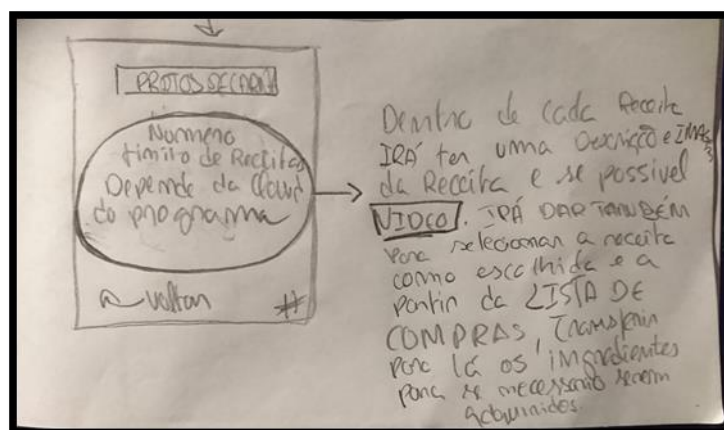 PRATOS DE CARNE
Número
limite de Receitas
Depende da Cloud
do programa
voltar
#
Dentro de cada Receita
IRÁ ter uma Descrição e IMAGEM
da Receita e se possivel
VIDEO. IRÁ DAR TAMBÉM
para selecionar a receita
como escolhida e a
partir da LISTA DE
COMPRAS, transferir
para lá os ingredientes
para se necessario serem
adquiridos.